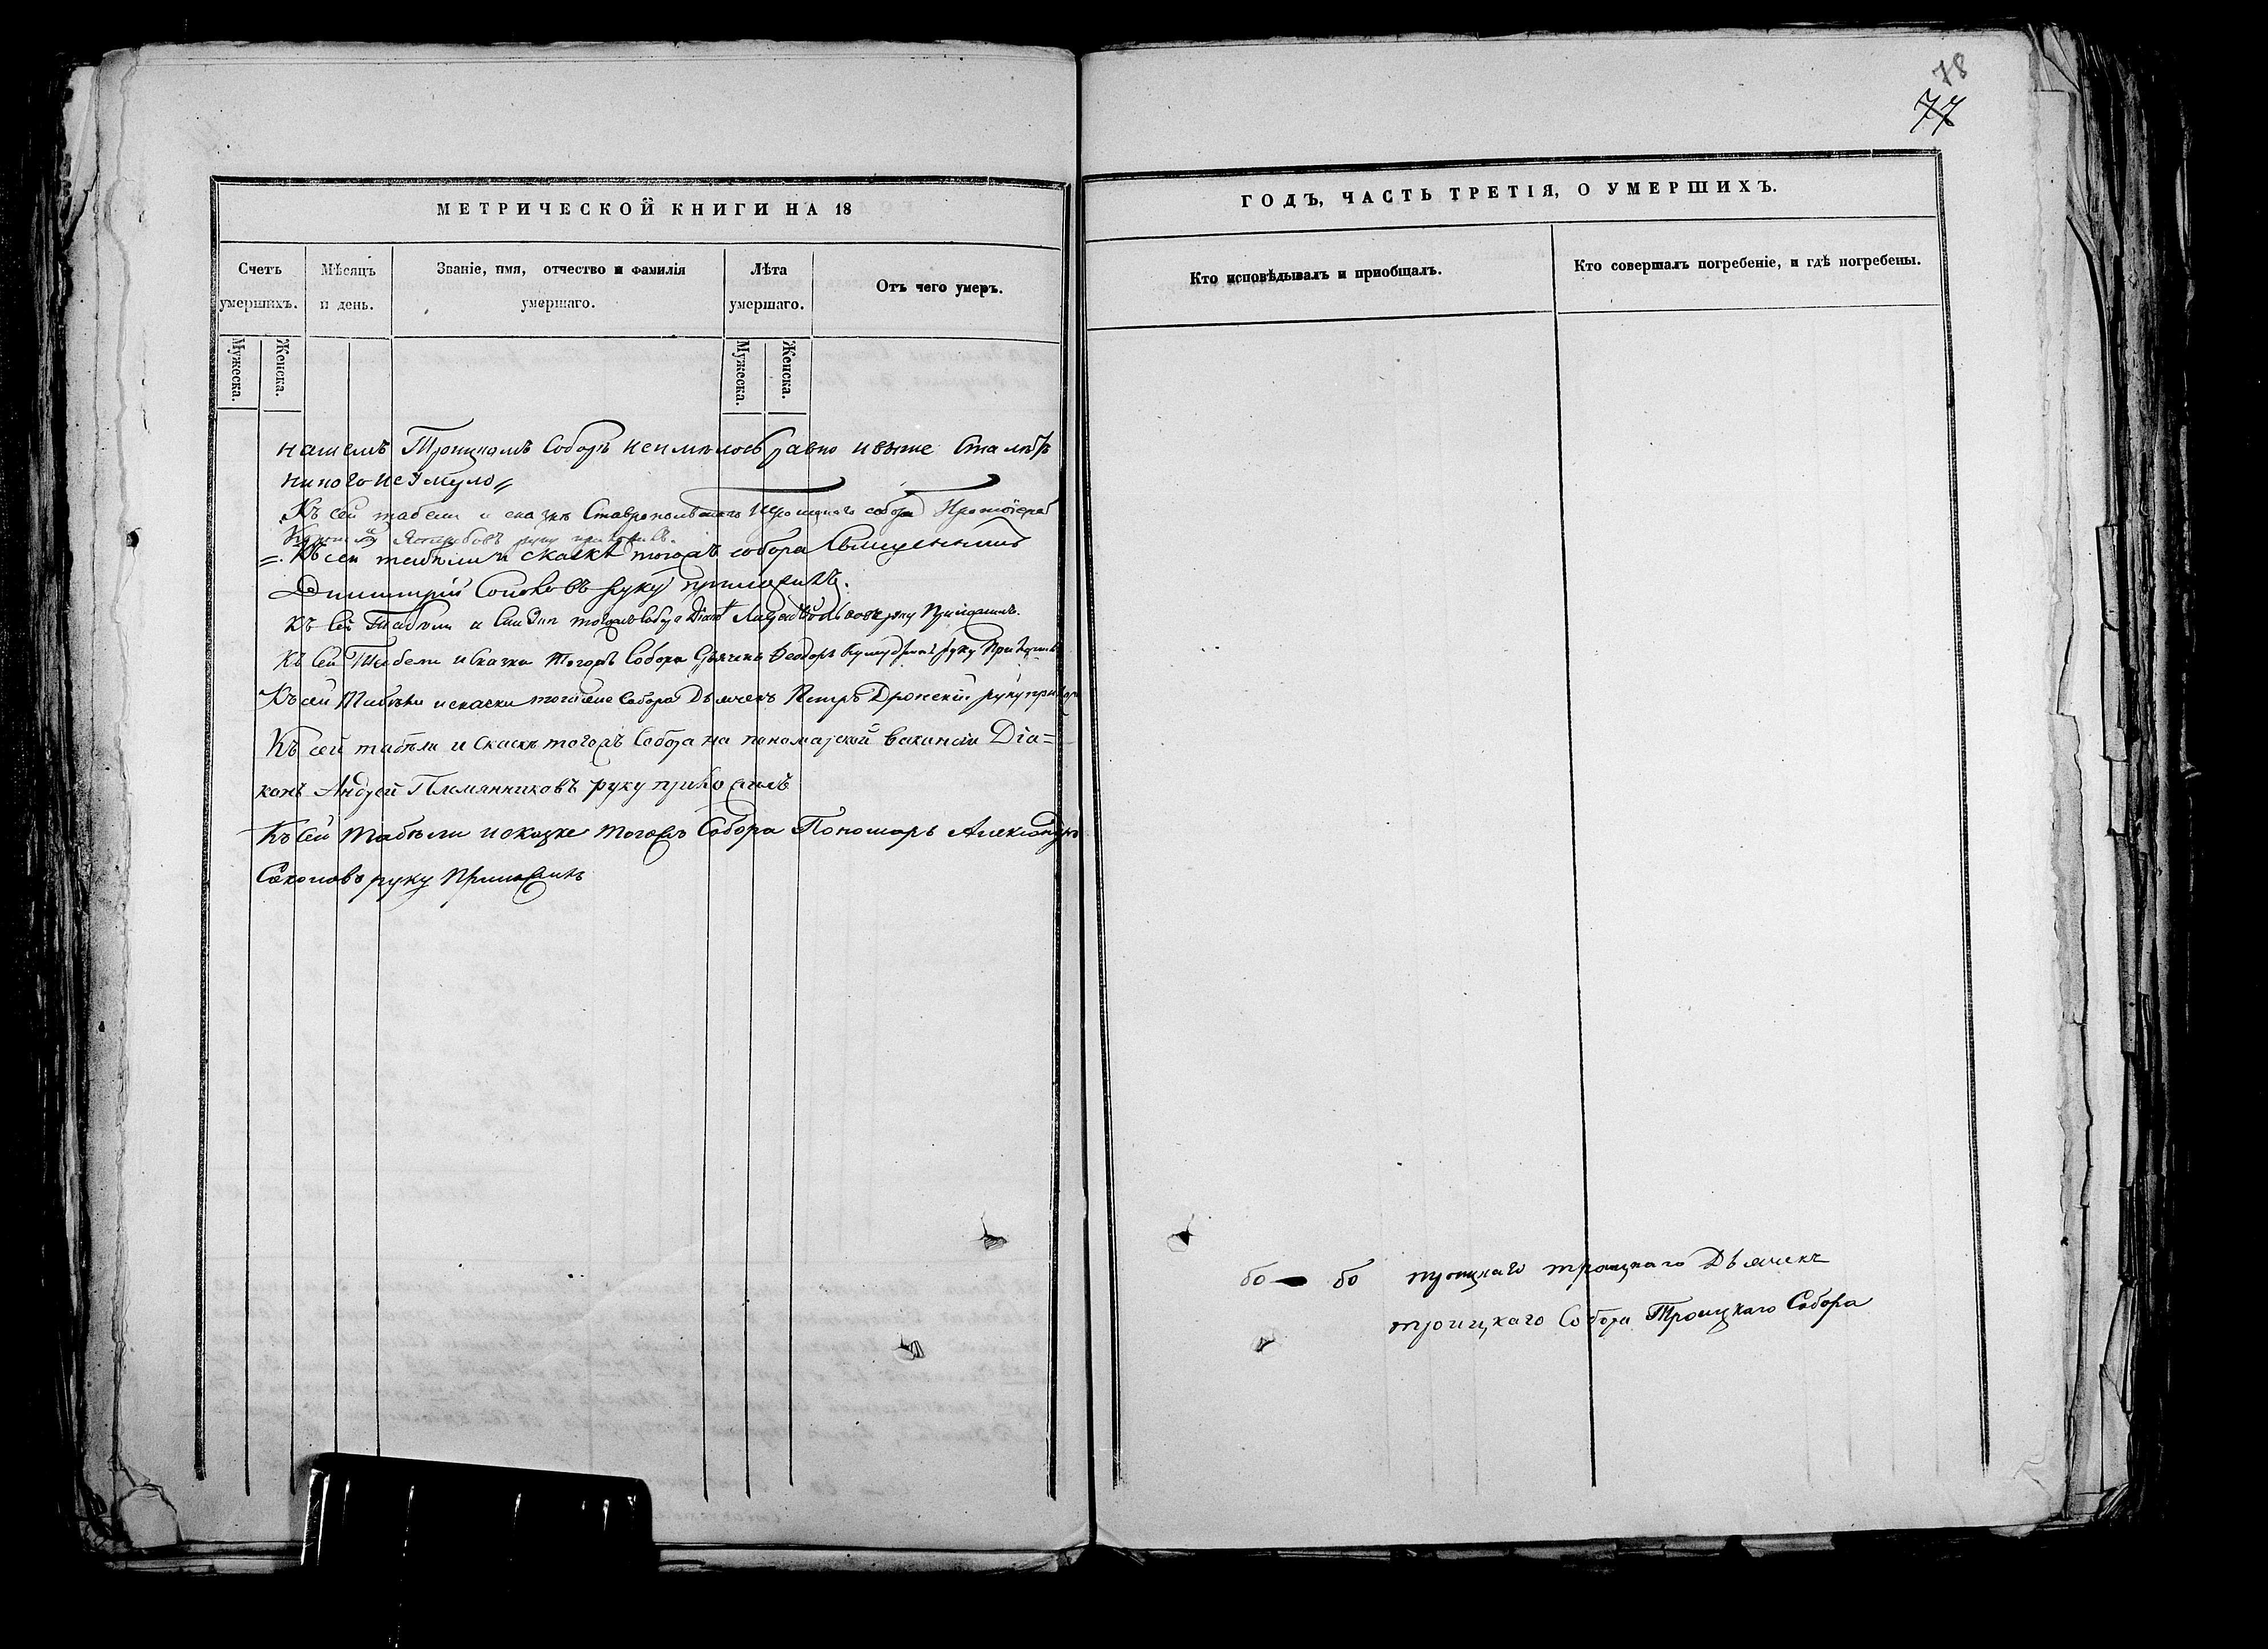 78
77
МЕТРИЧЕСКОЙ КНИГИ НА 18
ГОДЪ, ЧАСТЬ ТРЕТІЯ, О УМЕРШИХЪ.
Счетъ умершихъ.
Мѣсяцъ и день.
Званіе, имя, отчество и фамилія умершаго.
Лѣта умершаго.
Отъ чего умеръ.
Кто исповѣдывалъ и приобщалъ.
Кто совершалъ погребеніе, и гдѣ погребены.
Мужеска.
Женска.
Мужеска.
Женска.
нашемъ Троицкомъ Соборѣ неимѣлось равно и выше ста лѣтъ
никого не умерло
Къ сей табели и сказкѣ Ставропольскаго Троицкаго собора Протоіерей
руку приложилъ.
Къ сей табѣли и скаскѣ тогожъ собора Священникъ
Димитрій Соколовъ руку приложилъ.
Къ сей Табѣли и тогожъ Собора Діаконъ руку Приложилъ.
Къ сей Табели и сказки Тогожъ Собора Дьячекъ Феодоръ руку Приложилъ
Къ сей Табѣли и скаски тогоже Собора Дьячекъ Петръ руку прилож
Къ сей табѣли и скаскѣ тогожъ Собора на пономарской вакансіи Діа=
конъ Андрей Племянниковъ руку приложилъ
Къ сей табѣли и сказке тогожъ Собора Пономарь Александръ
Соколовъ руку Приложилъ
бо бо троицкаго троицкаго Дьячекъ
троицкаго Собора Троицкаго Собора